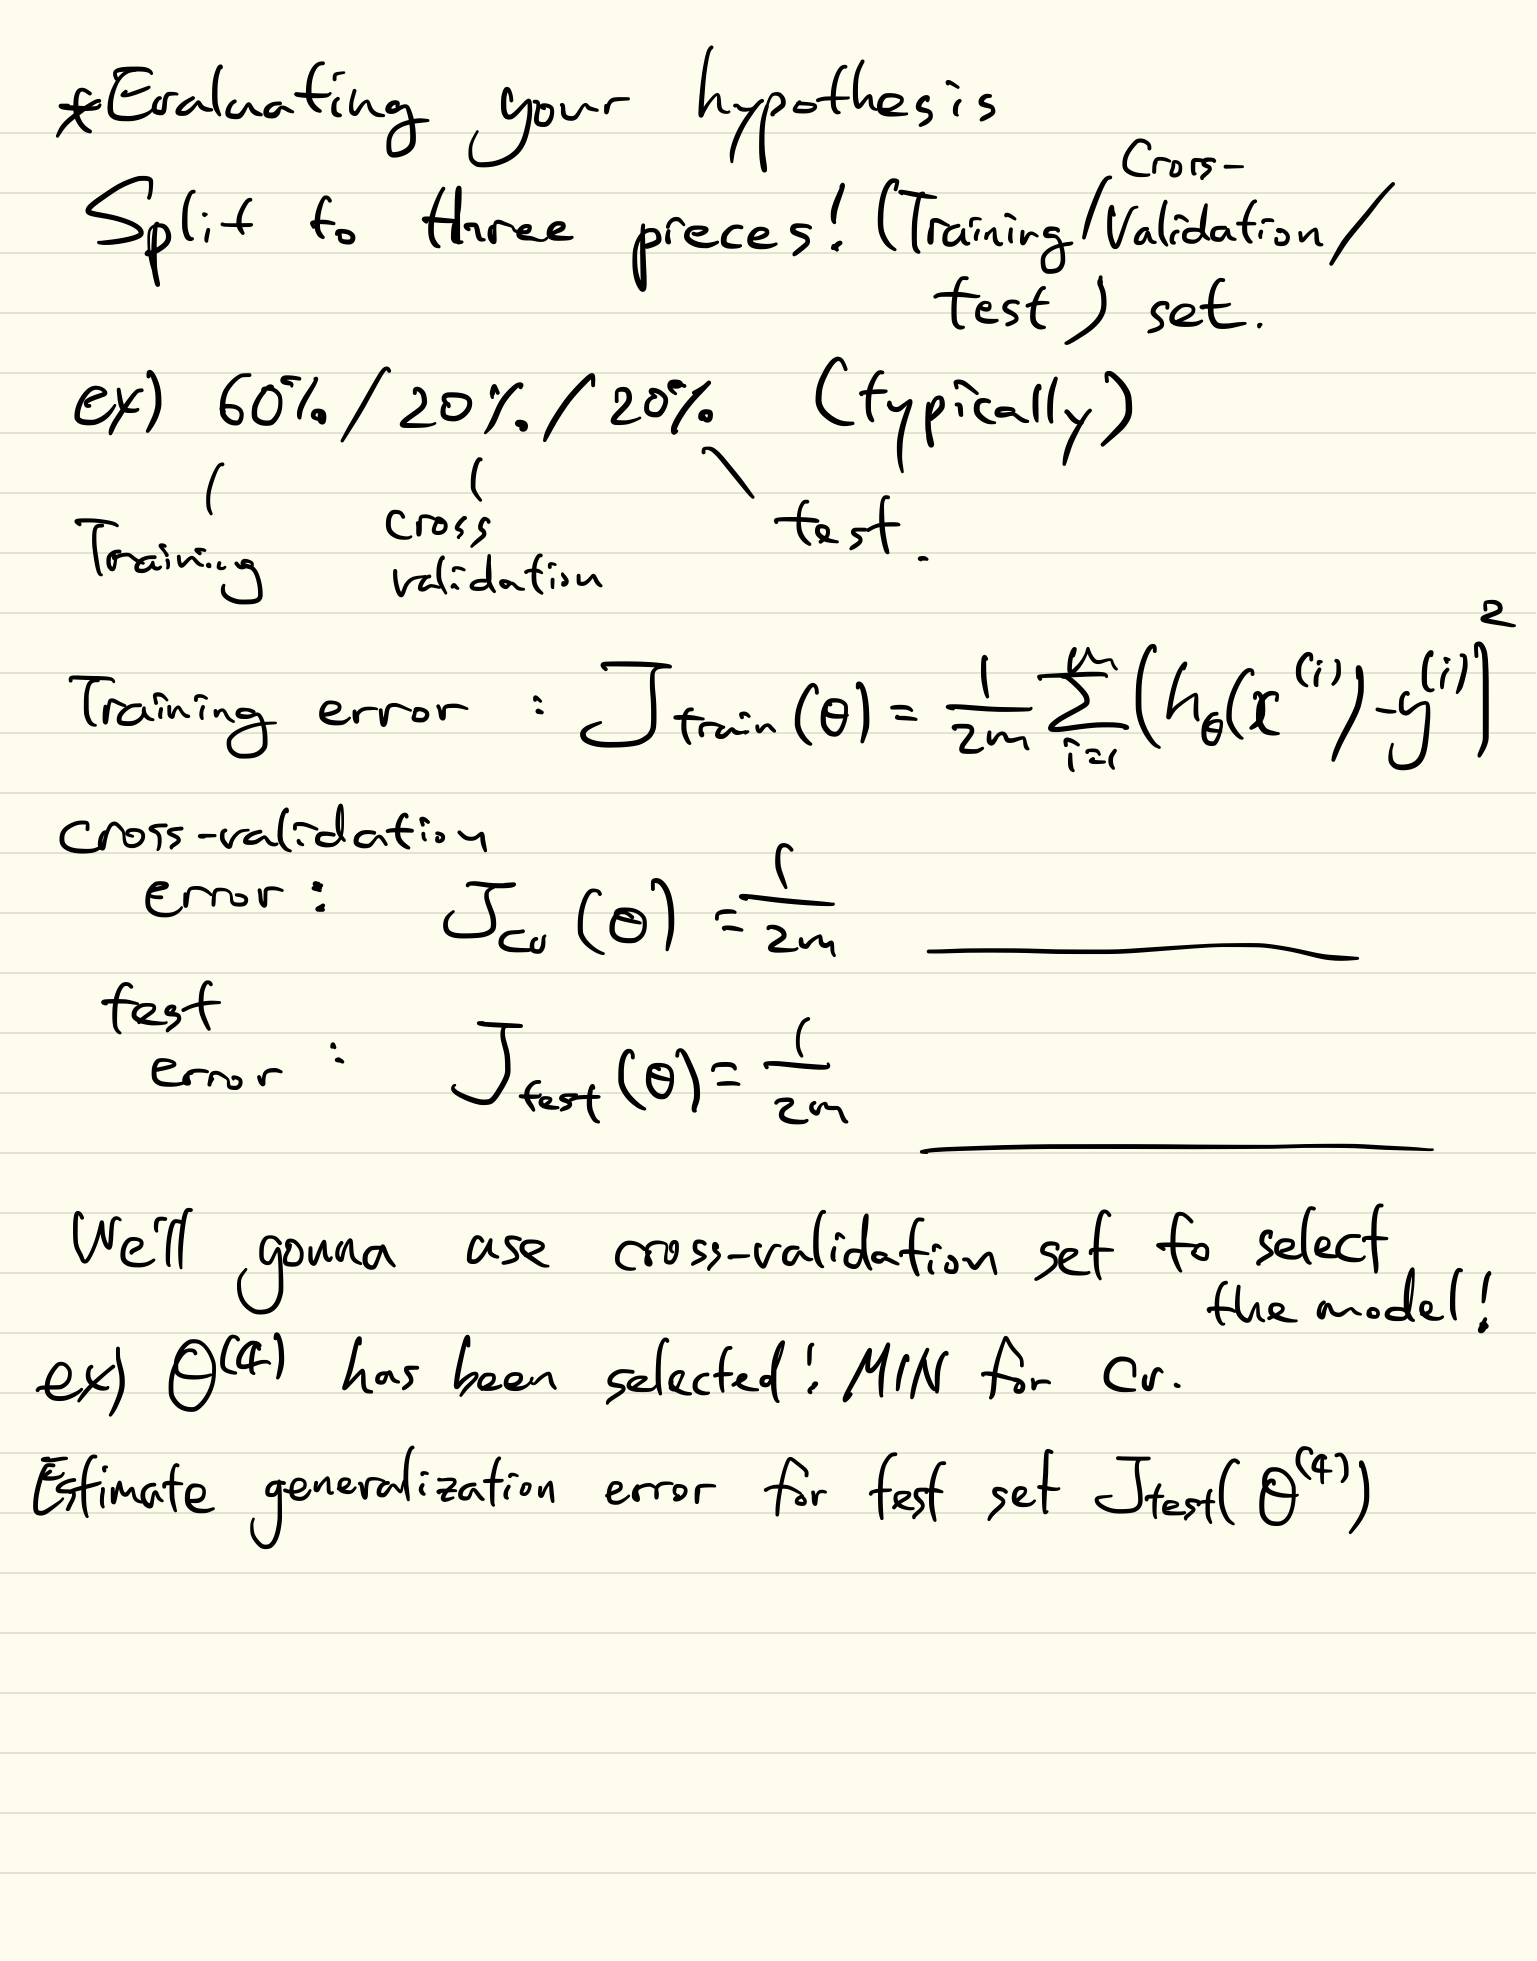 *Evaluating your hypothesis
Split to three preces! (Training/Cross-Validation/
test) set.
ex) 60%/20%/20% (typically)
Training cross validation test.
Training error : J_train(θ) = 1/2m Σ_{i=1}^{m} (h_θ(x^(i))-y^(i))^2
cross-validation
error : J_cv(θ) = 1/2m ____
test
error : J_test(θ) = 1/2m ____
We'll gonna use cross-validation set to select
the model!
ex) θ^(4) has been selected! MIN for cv.
Estimate generalization error for test set J_test(θ^(4))